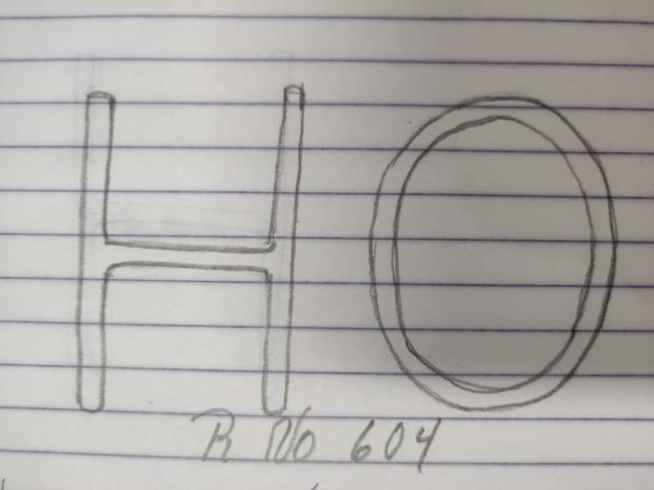 HO
R No 604